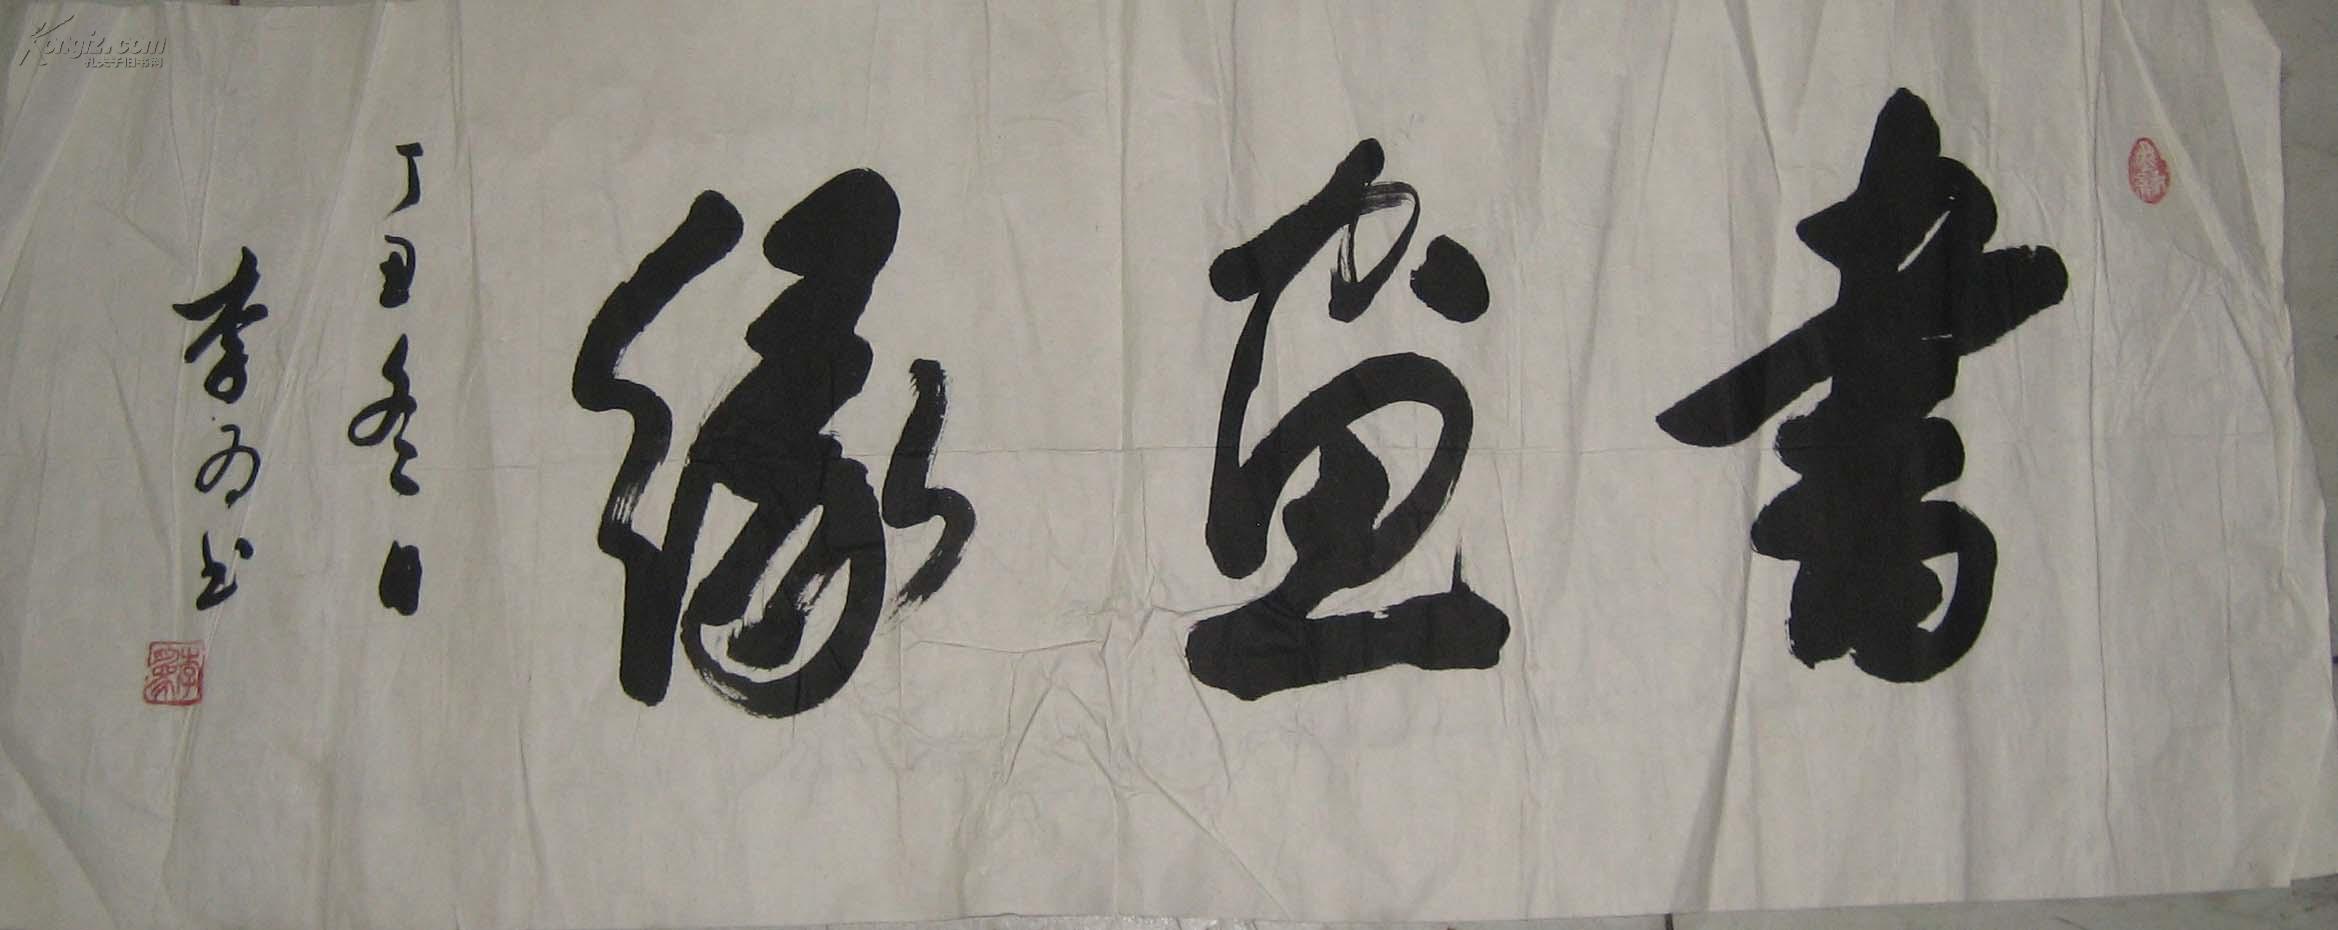 書畫緣
丁丑冬日
李為书
Kongfz.com
孔夫子旧书网